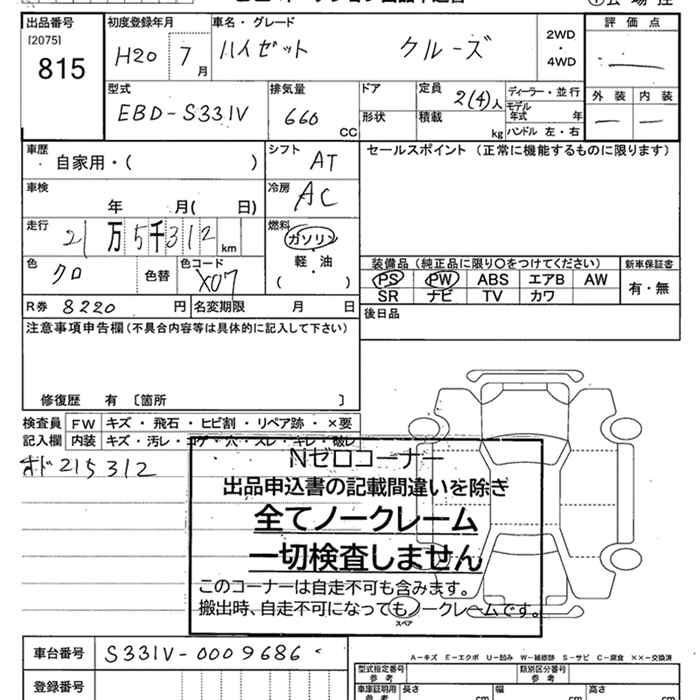 出品番号 [2075] 815
初度登録年月 H20 7月
車名・グレード ハイゼット クルーズ
2WD・4WD
評価点 —
外装 — 内装 —
型式 EBD-S331V
排気量 660 CC
ドア 形状
定員 2(4)人
積載 kg
ディーラー・並行
モデル年式 年
ハンドル 左・右
車歴 自家用・( )
シフト AT
セールスポイント (正常に機能するものに限ります)
車検 年 月( 日)
冷房 AC
走行 21万5千312km
燃料 ガソリン 軽・油 ( )
色 クロ 色替 色コード X07
装備品 (純正品に限り〇をつけてください)
新車保証書 有・無
PS PW ABS エアB AW
SR ナビ TV カワ
R券 8220円 名変期限 月 日
後日品
注意事項申告欄(不具合内容等は具体的に記入して下さい)
修復歴 有 〔箇所 〕
検査員記入欄 FW キズ・飛石・ヒビ割・リペア跡・×要
内装 キズ・汚レ・コゲ・穴・スレ・キレ・破レ
オド215312
Nゼロコーナー
出品申込書の記載間違いを除き
全てノークレーム
一切検査しません
このコーナーは自走不可も含みます。
搬出時、自走不可になってもノークレームです。
スペア
車台番号 S331V-0009686
登録番号
A-キズ E-エクボ U-凹み W-補修跡 S-サビ C-腐食 ××-交換済
型式指定番号 参考 類別区分番号 参考
車庫証明用 参考 長さ cm 幅 cm 高さ cm